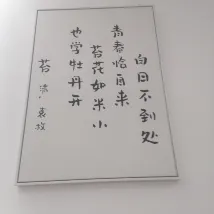 白日不到处
青春恰自来
苔花如米小
也学牡丹开
苔 清·袁枚